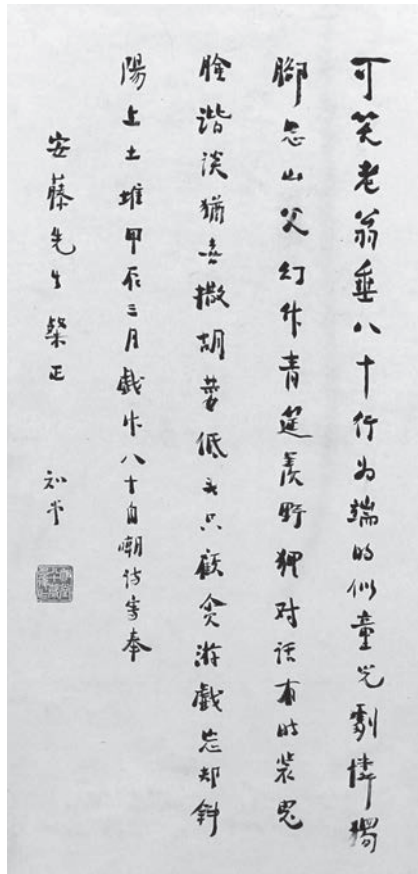 可笑老翁垂八十行为端的似童児劇憐獨
腳思山父幻作青筵羨野狸对话有时装鬼
臉谐谈猶喜撒胡荽低头只顧贪游戲忘却斜
陽上土堆甲辰三月戲作八十自嘲诗寄奉
安藤先生粲正 知堂